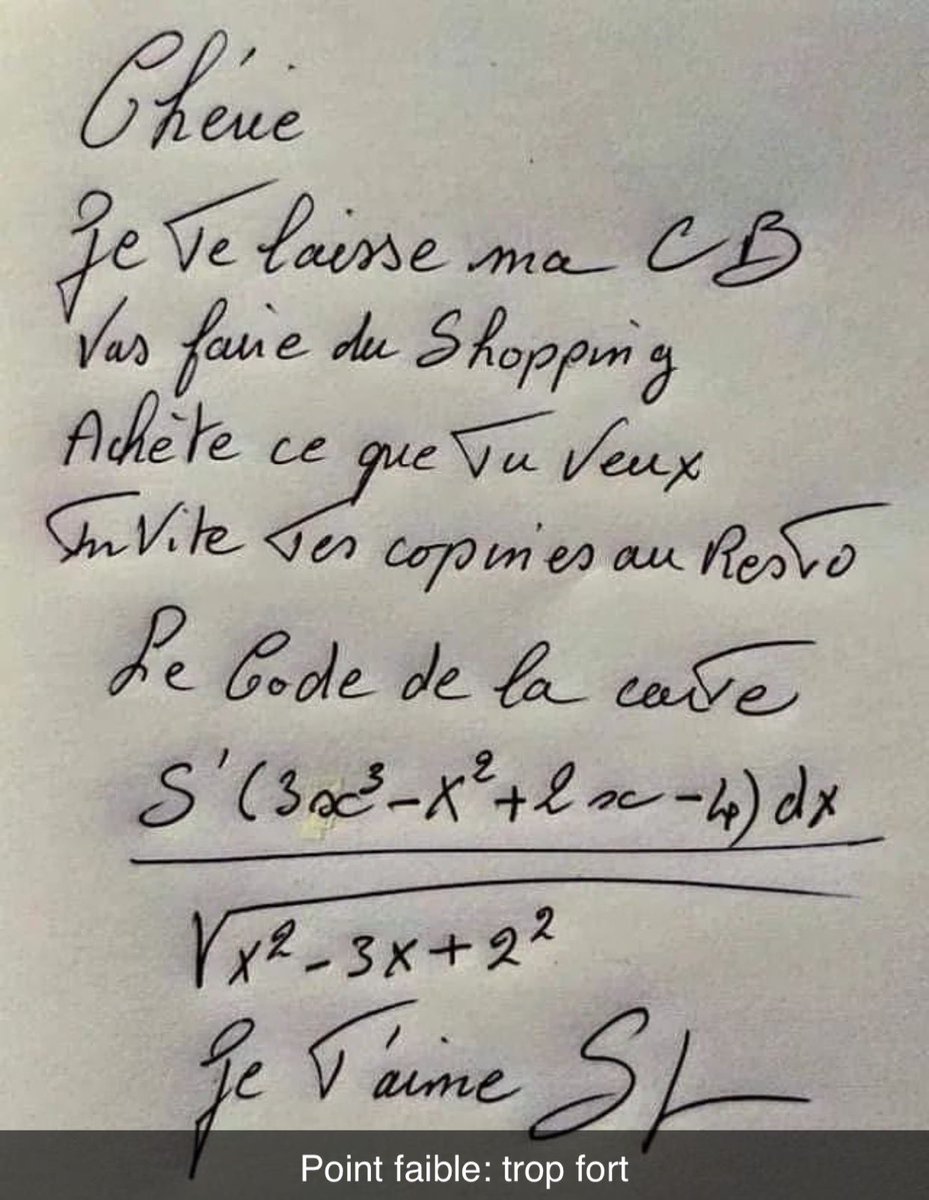 Chérie
Je te laisse ma CB
Vas faire du Shopping
Achète ce que Tu veux
Invite tes copines au Resto
Le Code de la carte
S'(3x³-x²+2x-4)dx
√x²-3x+2²
Je T'aime
Point faible: trop fort